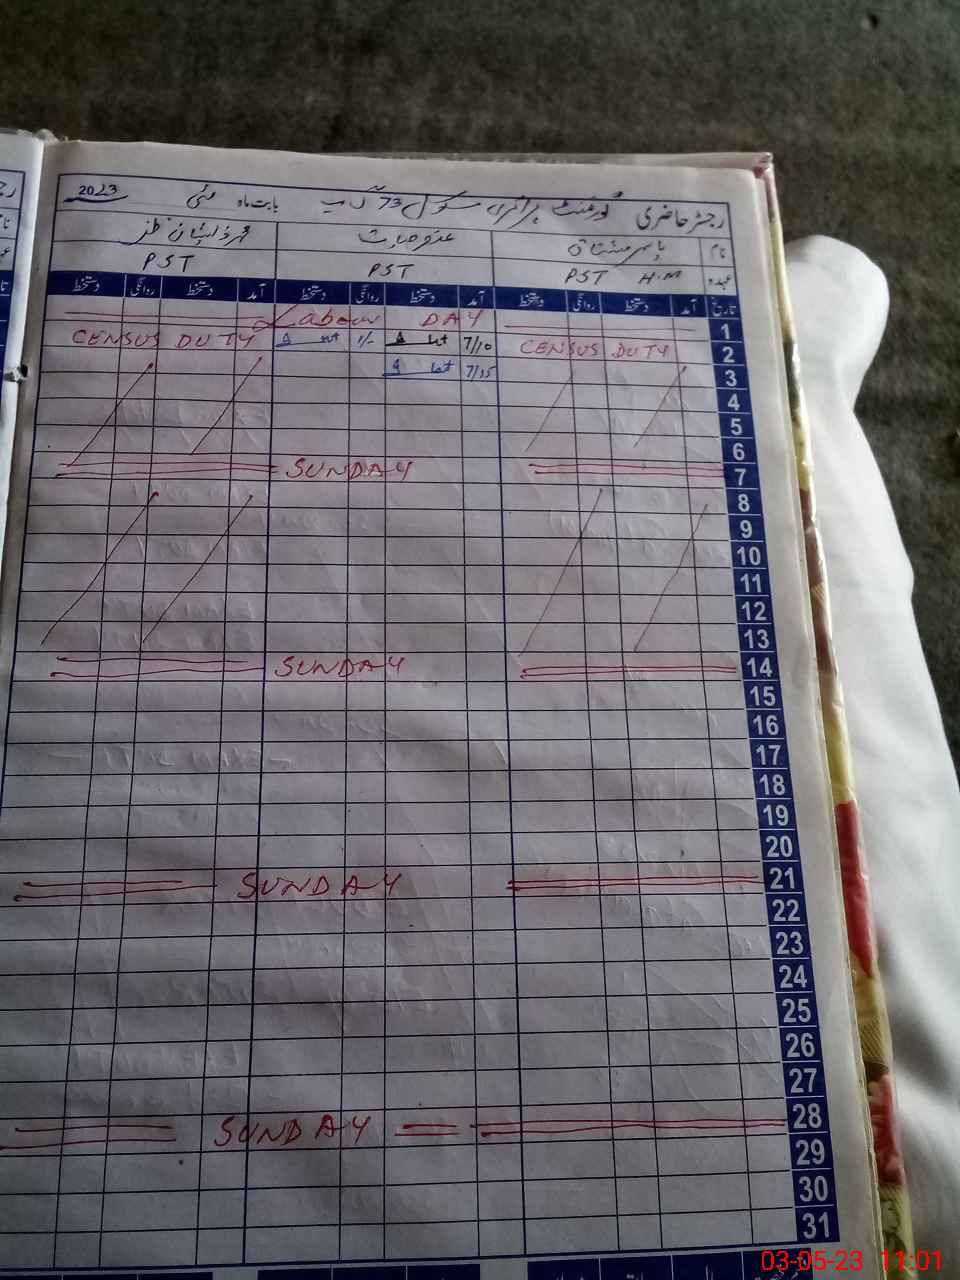 رجسٹر حاضری گورنمنٹ پرائمری سکول 73 بابت ماہ مئی 2023
نام
عہدہ PST H.M PST PST
تاریخ آمد دستخط روانگی دستخط آمد دستخط روانگی دستخط آمد دستخط روانگی دستخط
1 Labour DAY
2 CENSUS DUTY 7/10 1/- CENSUS DUTY
3 7/15
4
5
6
7 SUNDAY
8
9
10
11
12
13
14 SUNDAY
15
16
17
18
19
20
21 SUNDAY
22
23
24
25
26
27
28 SUNDAY
29
30
31
03-05-23 11:01